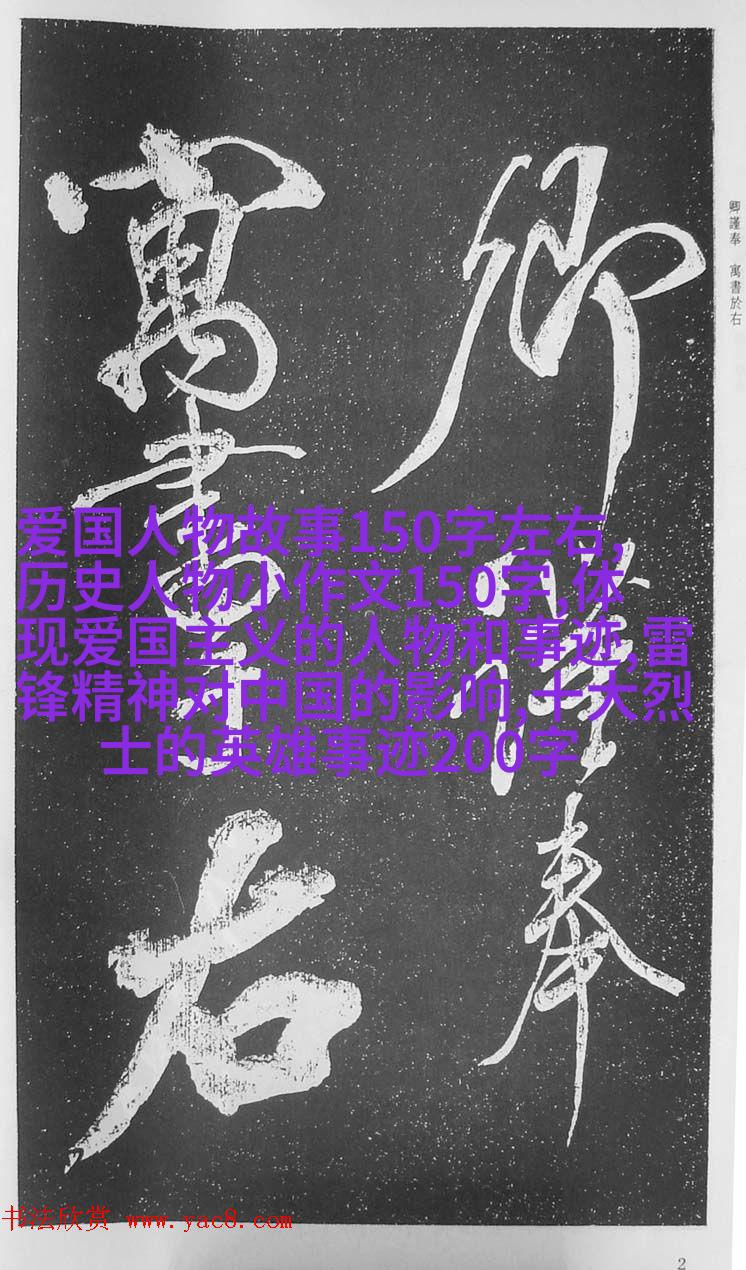 卿謹奉
寓書於右
卿謹奉 寓書於右
爱国人物故事150字左右,
历史人物小作文150字,体
现爱国主义的人物和事迹,雷
锋精神对中国的影响,十大烈
士的英雄事迹200字
书法欣赏 www.yac8.com
2